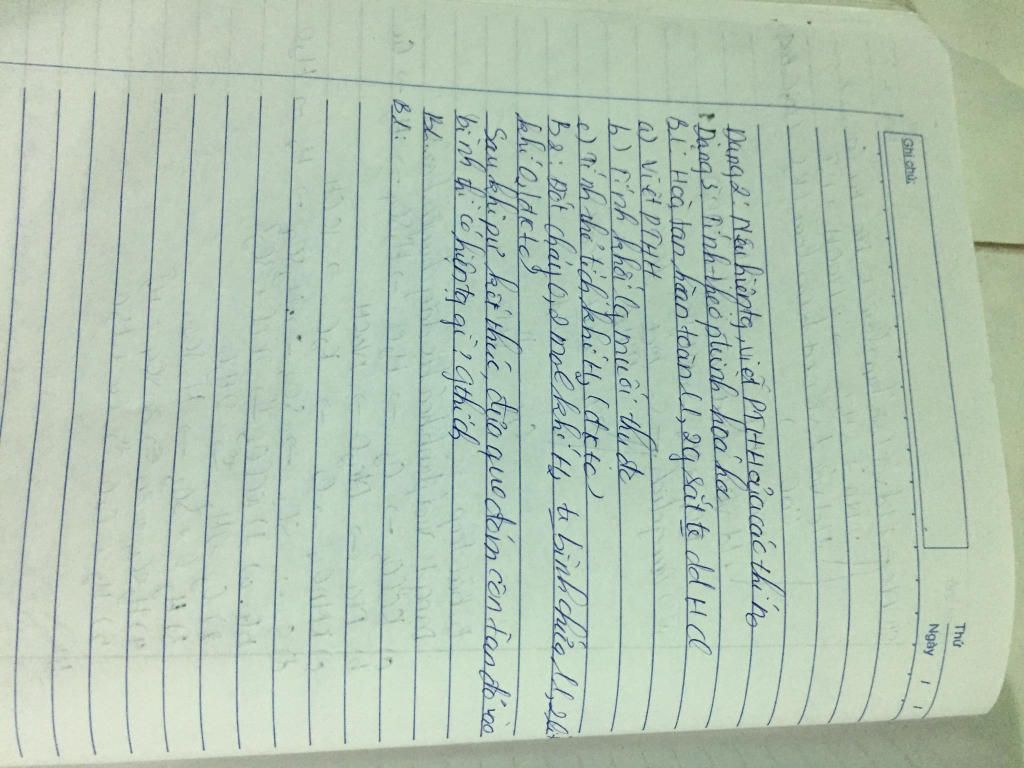 Ghi chú:
Thứ
Ngày
Dạng 2: Nêu hiện tg, viết PTHH của các thí no
Dạng 3: Tính theo ptrình hoá học
B1: Hoà tan hoàn toàn 11,2g sắt td dd HCl
a) Viết PTHH
b) Tính khối lg muối thu đc
c) Tính thể tích khí H2 (đktc)
B2: Đốt cháy 0,2 mol khí H2 tr bình chứa 11,2 lít
khí O2 (đktc)
Sau khi pứ kết thúc, đưa que đóm còn tàn đỏ vào
bình thì có hiện tg gì? gthích
B1:
B1: